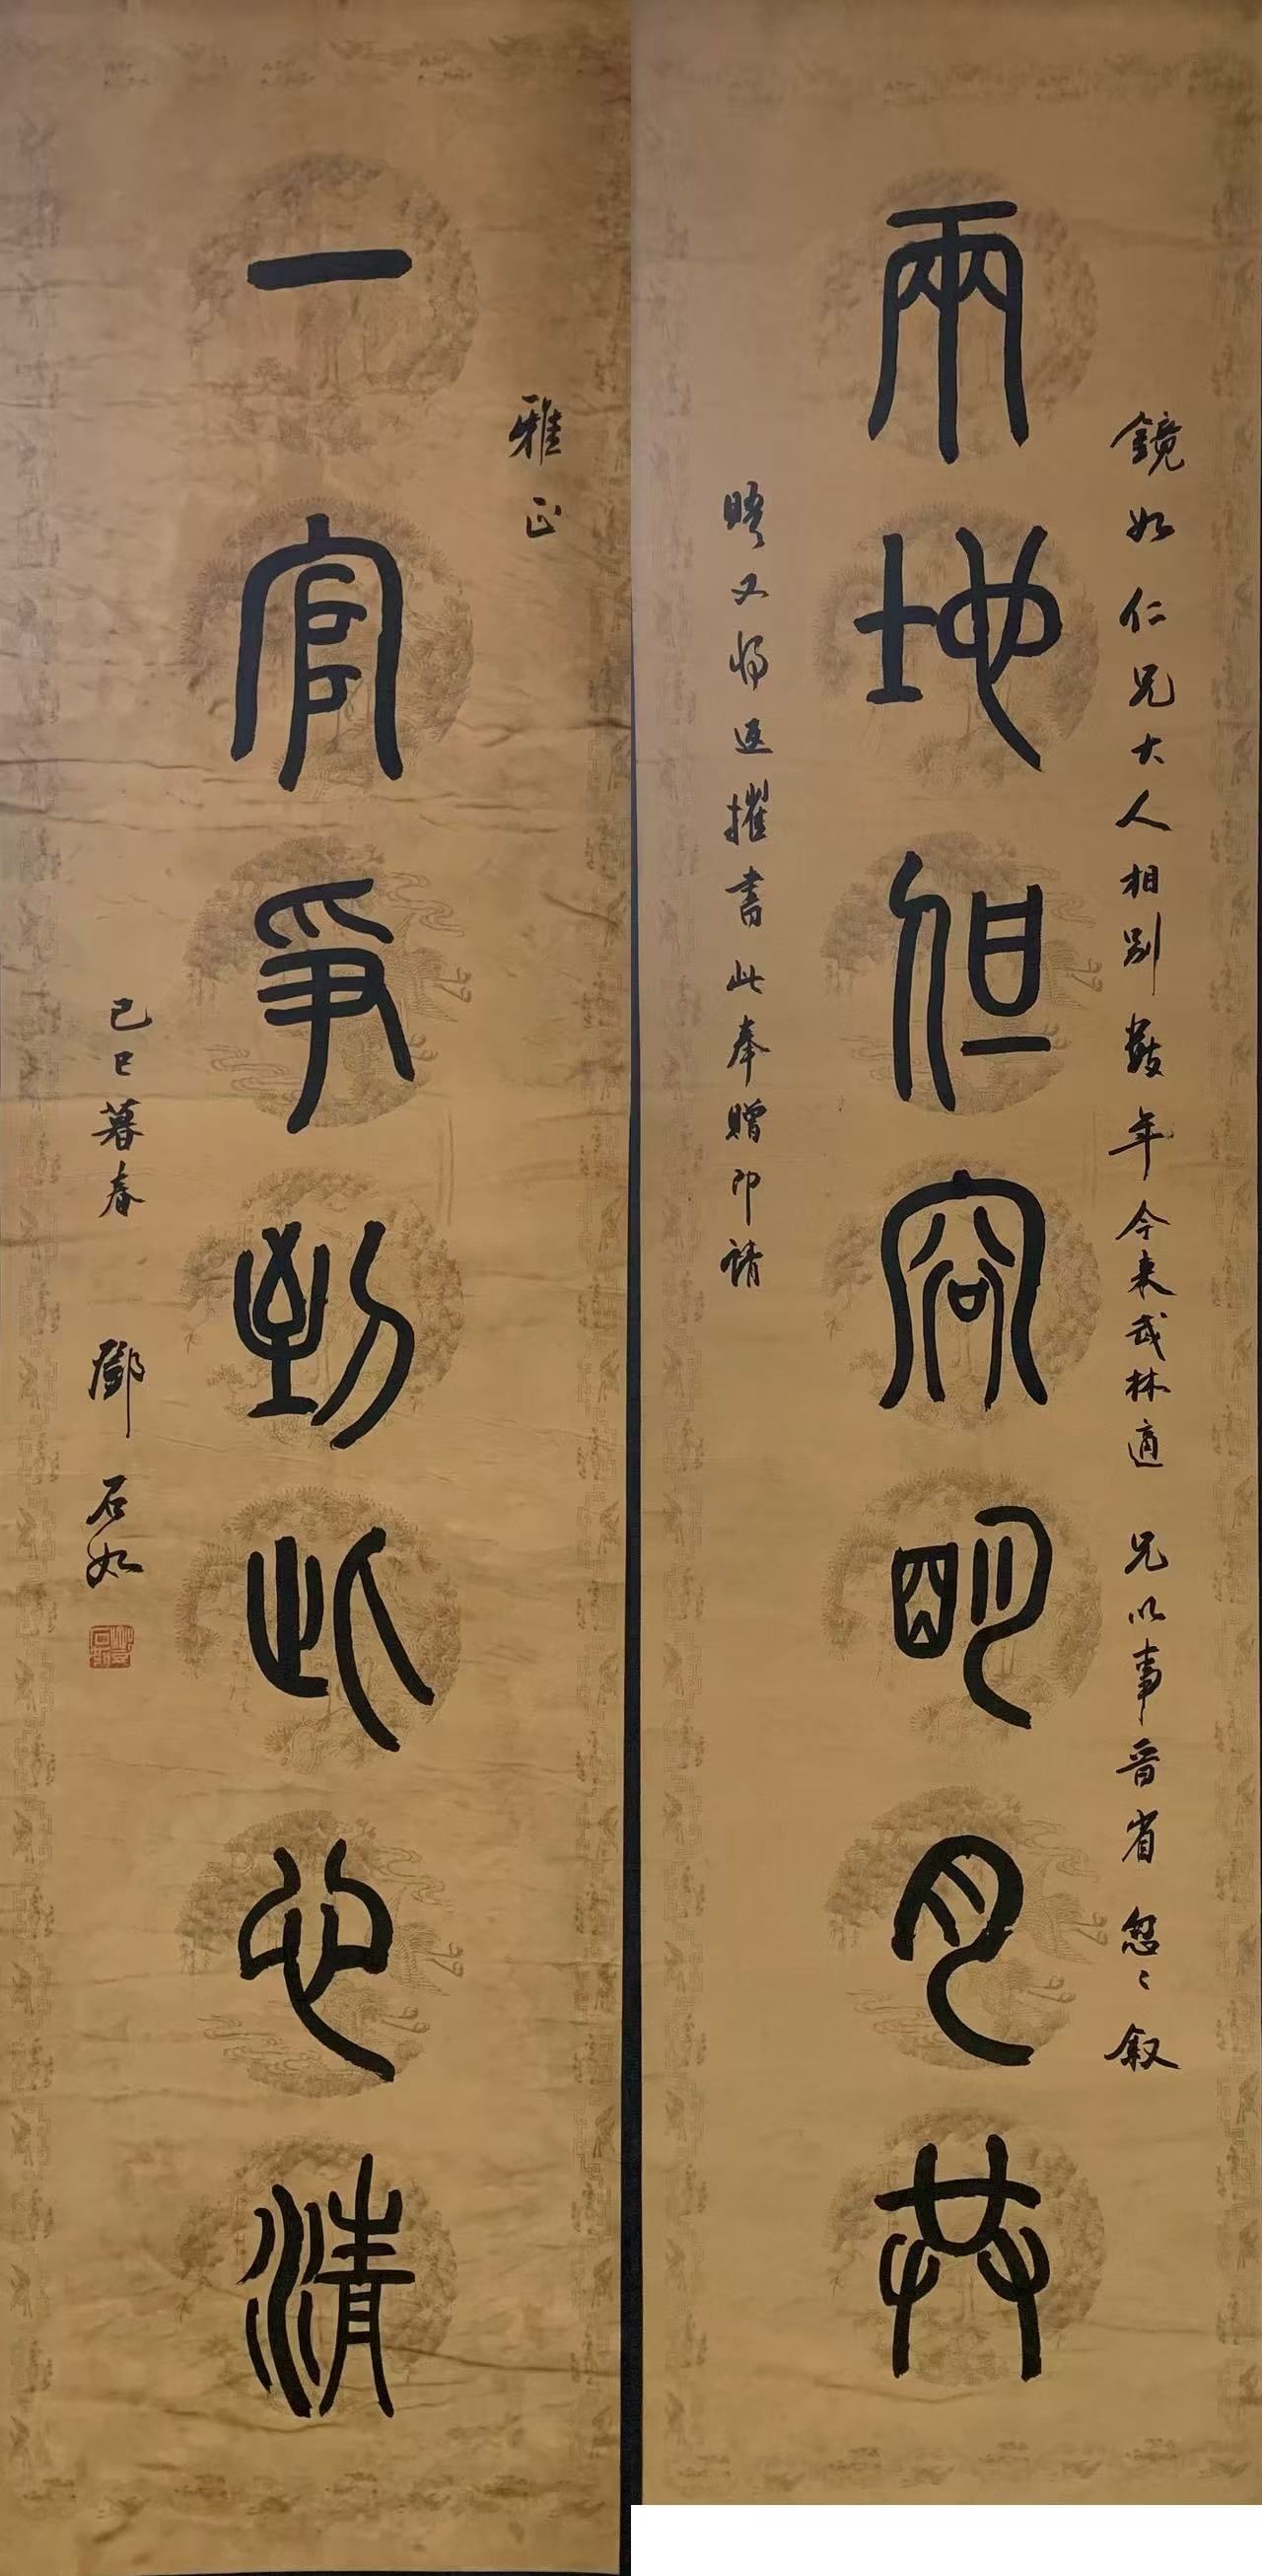 鏡如仁兄大人相別數年今來武林適 兄以事晉省忽〻叙
兩地但容朙月共
晤又將返摧書此奉贈即請
雅正
一官爭到此心清
己巳暮春 鄧石如